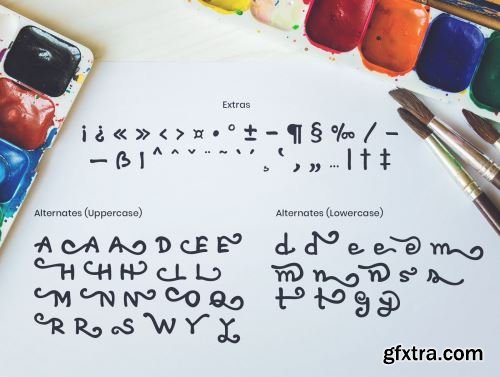 Extras
¡ ¿ « » < > ¤ • ° ± – ¶ § ‰ / –
— ß | ^ ^ ˇ ¨ ~ ` ´ ¸ ‘ , „ … | † ‡
Alternates (Uppercase)
A A A A D E E
H H H L L
M N N O Q
R R S W Y Y
Alternates (Lowercase)
d d e e e m
m n n s s
t t g g
gfxtra.com